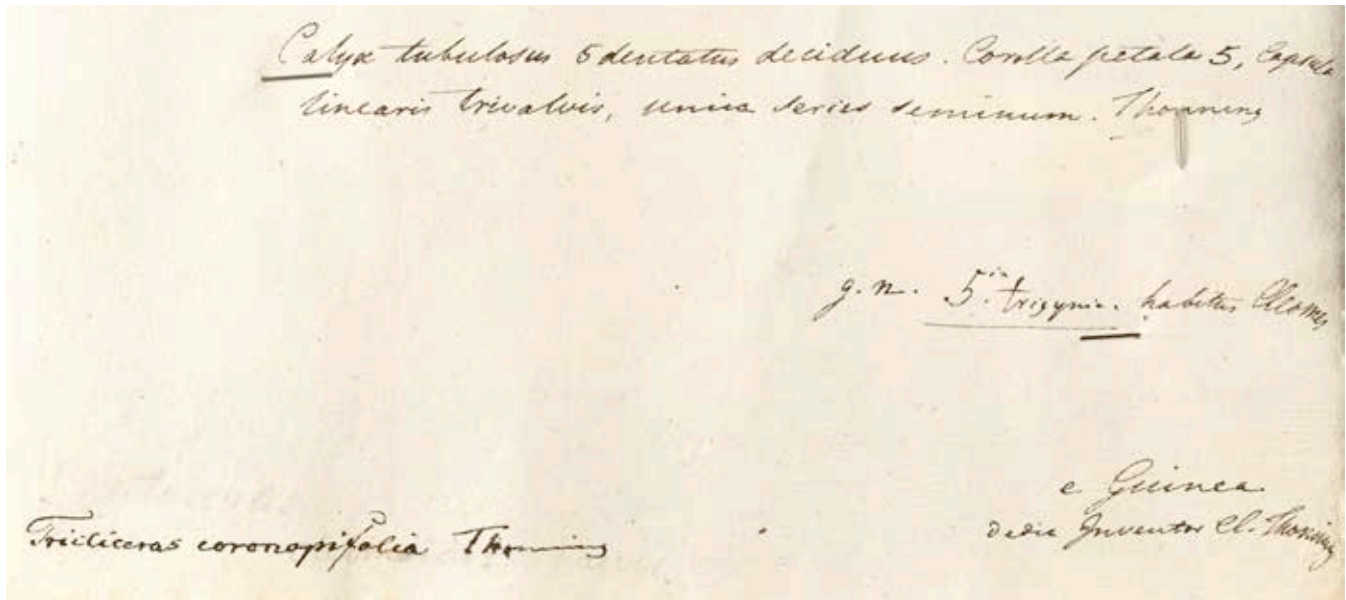 Calyx tubulosus 5 dentatus deciduus. Corolla petala 5, Capsula
linearis trivalvis, unica series seminum. Thonning
g. n. 5.ia trigynia. habitus Cleomes
e Guinea
dedit Inventor Cl. Thonning
Triciliceras coronopifolia Thonning